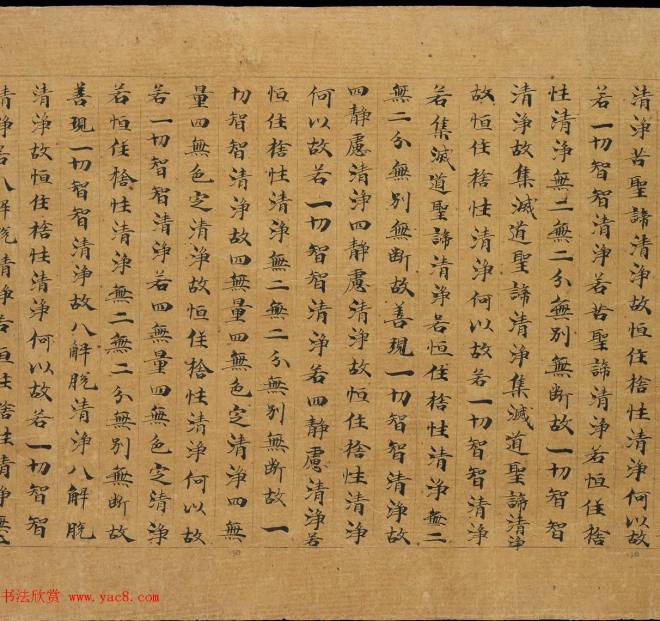 清淨苦聖諦清淨故恒住捨性清淨何以故
若一切智智清淨若苦聖諦清淨若恒住捨
性清淨無二無二分無別無斷故一切智智
清淨故集滅道聖諦清淨集滅道聖諦清淨
故恒住捨性清淨何以故若一切智智清淨
若集滅道聖諦清淨若恒住捨性清淨無二
無二分無別無斷故善現一切智智清淨故
四靜慮清淨四靜慮清淨故恒住捨性清淨
何以故若一切智智清淨若四靜慮清淨若
恒住捨性清淨無二無二分無別無斷故一
切智智清淨故四無量四無色定清淨四無
量四無色定清淨故恒住捨性清淨何以故
若一切智智清淨若四無量四無色定清淨
若恒住捨性清淨無二無二分無別無斷故
善現一切智智清淨故八解脫清淨八解脫
清淨故恒住捨性清淨何以故若一切智智
清淨若八解脫清淨若恒住捨性清淨無二
书法欣赏 www.yac8.com